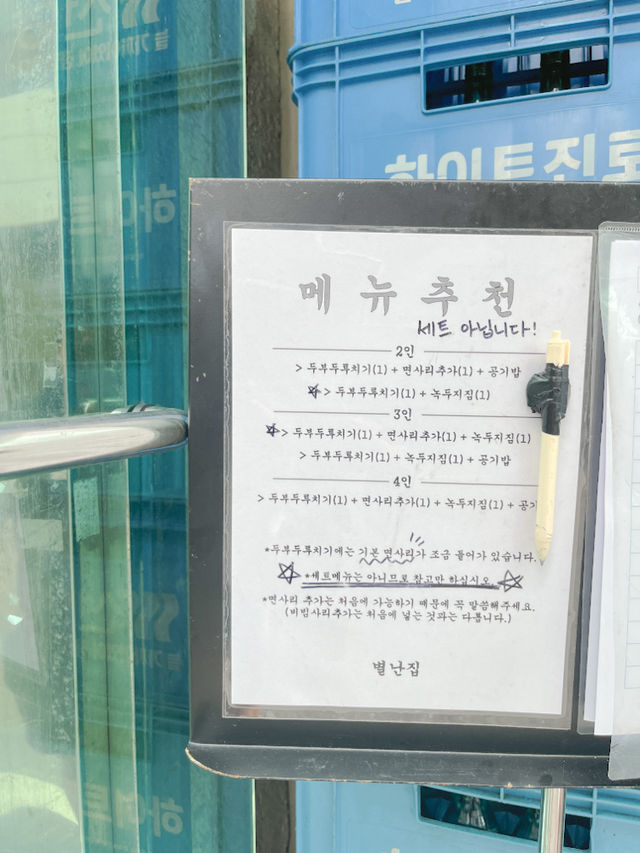 하이트진로
메 뉴 추 천
세트 아닙니다!
2인
> 두부두루치기(1) + 면사리추가(1) + 공기밥
☆ > 두부두루치기(1) + 녹두지짐(1)
3인
☆ > 두부두루치기(1) + 면사리추가(1) + 녹두지짐(1)
> 두부두루치기(1) + 녹두지짐(1) + 공기밥
4인
> 두부두루치기(1) + 면사리추가(1) + 녹두지짐(1) + 공기
*두부두루치기에는 기본 면사리가 조금 들어가 있습니다.
☆ *세트메뉴는 아니므로 참고만 하십시오. ☆
*면사리 추가는 처음에 가능하기 때문에 꼭 말씀해주세요.
(비빔사리추가는 처음에 넣는 것과는 다릅니다.)
별난집